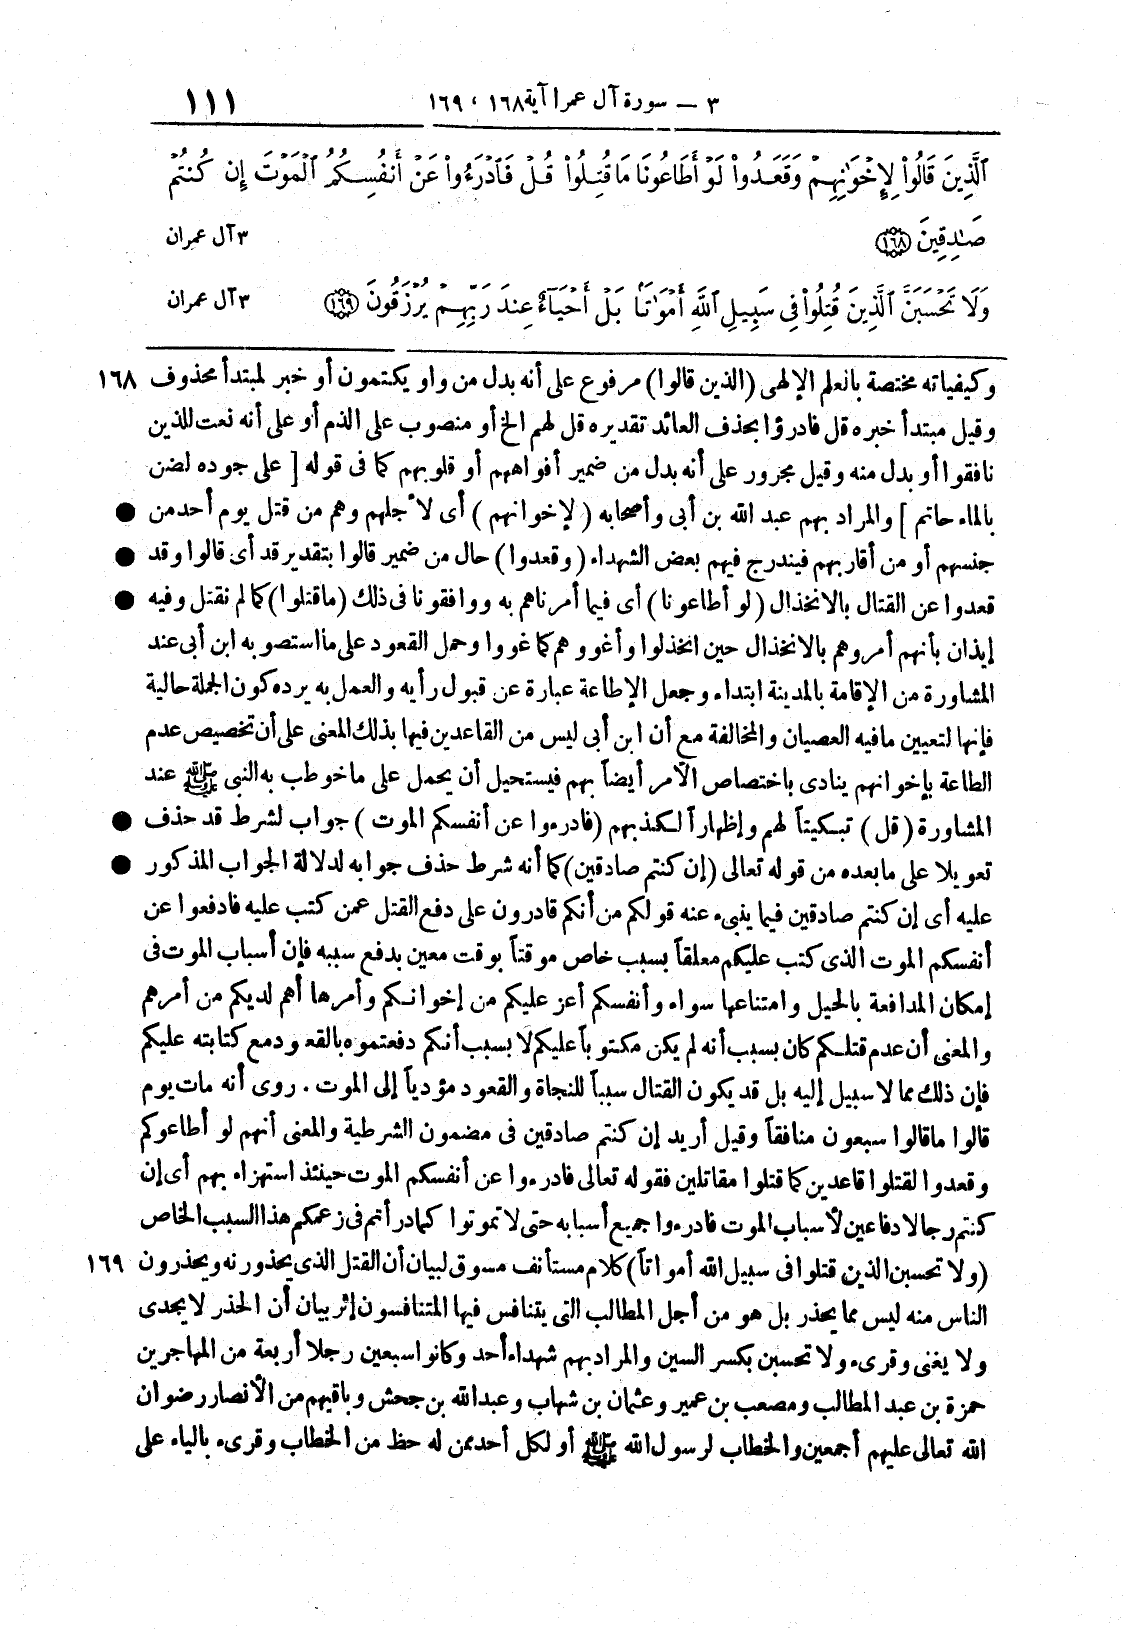 ٣ — سورة آل عمرا آية ١٦٨ ، ١٦٩ ١١١
ٱلَّذِينَ قَالُوا۟ لِإِخْوَٰنِهِمْ وَقَعَدُوا۟ لَوْ أَطَاعُونَا مَا قُتِلُوا۟ قُلْ فَٱدْرَءُوا۟ عَنْ أَنفُسِكُمُ ٱلْمَوْتَ إِن كُنتُمْ
صَٰدِقِينَ ١٦٨ ٣ آل عمران
وَلَا تَحْسَبَنَّ ٱلَّذِينَ قُتِلُوا۟ فِى سَبِيلِ ٱللَّهِ أَمْوَٰتًۢا بَلْ أَحْيَآءٌ عِندَ رَبِّهِمْ يُرْزَقُونَ ١٦٩ ٣ آل عمران
وكيفياته مختصة بالعلم الإلهى (الذين قالوا) مرفوع على أنه بدل من واو يكتمون أو خبر لمبتدأ محذوف ١٦٨
وقيل مبتدأ خبره قل فادرؤا بحذف العائد تقديره قل لهم الخ أو منصوب على الذم أو على أنه نعت للذين
نافقوا أو بدل منه وقيل مجرور على أنه بدل من ضمير أفواههم أو قلوبهم كما فى قوله [ على جوده لضن
بالماء حاتم ] والمراد بهم عبد الله بن أبى وأصحابه ( لإخوانهم ) أى لأجلهم وهم من قتل يوم أحد من ●
جنسهم أو من أقاربهم فيندرج فيهم بعض الشهداء ( وقعدوا ) حال من ضمير قالوا بتقدير قد أى قالوا وقد ●
قعدوا عن القتال بالانخذال ( لو أطاعونا ) أى فيما أمرناهم به ووافقونا فى ذلك ( ما قتلوا ) كما لم نقتل وفيه ●
إيذان بأنهم أمروهم بالانخذال حين انخذلوا وأغووهم كما غووا وحمل القعود على ما استصوبه ابن أبى عند
المشاورة من الإقامة بالمدينة ابتداء وجعل الإطاعة عبارة عن قبول رأيه والعمل به يرده كون الجملة حالية
فإنها لتعيين ما فيه العصيان والمخالفة مع أن ابن أبى ليس من القاعدين فيها بذلك المعنى على أن تخصيص عدم
الطاعة بإخوانهم ينادى باختصاص الأمر أيضاً بهم فيستحيل أن يحمل على ما خوطب به النبى ﷺ عند
المشاورة ( قل ) تبكيتاً لهم وإظهاراً لكذبهم ( فادرءوا عن أنفسكم الموت ) جواب لشرط قد حذف ●
تعويلا على ما بعده من قوله تعالى ( إن كنتم صادقين ) كما أنه شرط حذف جوابه لدلالة الجواب المذكور ●
عليه أى إن كنتم صادقين فيما ينبىء عنه قولكم من أنكم قادرون على دفع القتل عمن كتب عليه فادفعوا عن
أنفسكم الموت الذى كتب عليكم معلقاً بسبب خاص موقتاً بوقت معين بدفع سببه فإن أسباب الموت فى
إمكان المدافعة بالحيل وامتناعها سواء وأنفسكم أعز عليكم من إخوانكم وأمرها أهم لديكم من أمرهم
والمعنى أن عدم قتلكم كان بسبب أنه لم يكن مكتوباً عليكم لا بسبب أنكم دفعتموه بالقعود مع كتابته عليكم
فإن ذلك مما لا سبيل إليه بل قد يكون القتال سبباً للنجاة والقعود مؤدياً إلى الموت . روى أنه مات يوم
قالوا ما قالوا سبعون منافقاً وقيل أريد إن كنتم صادقين فى مضمون الشرطية والمعنى أنهم لو أطاعوكم
وقعدوا لقتلوا قاعدين كما قتلوا مقاتلين فقوله تعالى فادرءوا عن أنفسكم الموت حينئذ استهزاء بهم أى إن
كنتم رجالا دفاعين لأسباب الموت فادرءوا جميع أسبابه حتى لا تموتوا كما درأتم فى زعمكم هذا السبب الخاص
( ولا تحسبن الذين قتلوا فى سبيل الله أمواتاً ) كلام مستأنف مسوق لبيان أن القتل الذى يحذرونه ويحذرون ١٦٩
الناس منه ليس مما يحذر بل هو من أجل المطالب التى يتنافس فيها المتنافسون إثر بيان أن الحذر لا يجدى
ولا يغنى وقرىء ولا تحسبن بكسر السين والمراد بهم شهداء أحد وكانوا سبعين رجلا أربعة من المهاجرين
حمزة بن عبد المطالب ومصعب بن عمير وعثمان بن شهاب وعبد الله بن جحش وباقيهم من الأنصار رضوان
الله تعالى عليهم أجمعين والخطاب لرسول الله ﷺ أو لكل أحد ممن له حظ من الخطاب وقرىء بالياء على